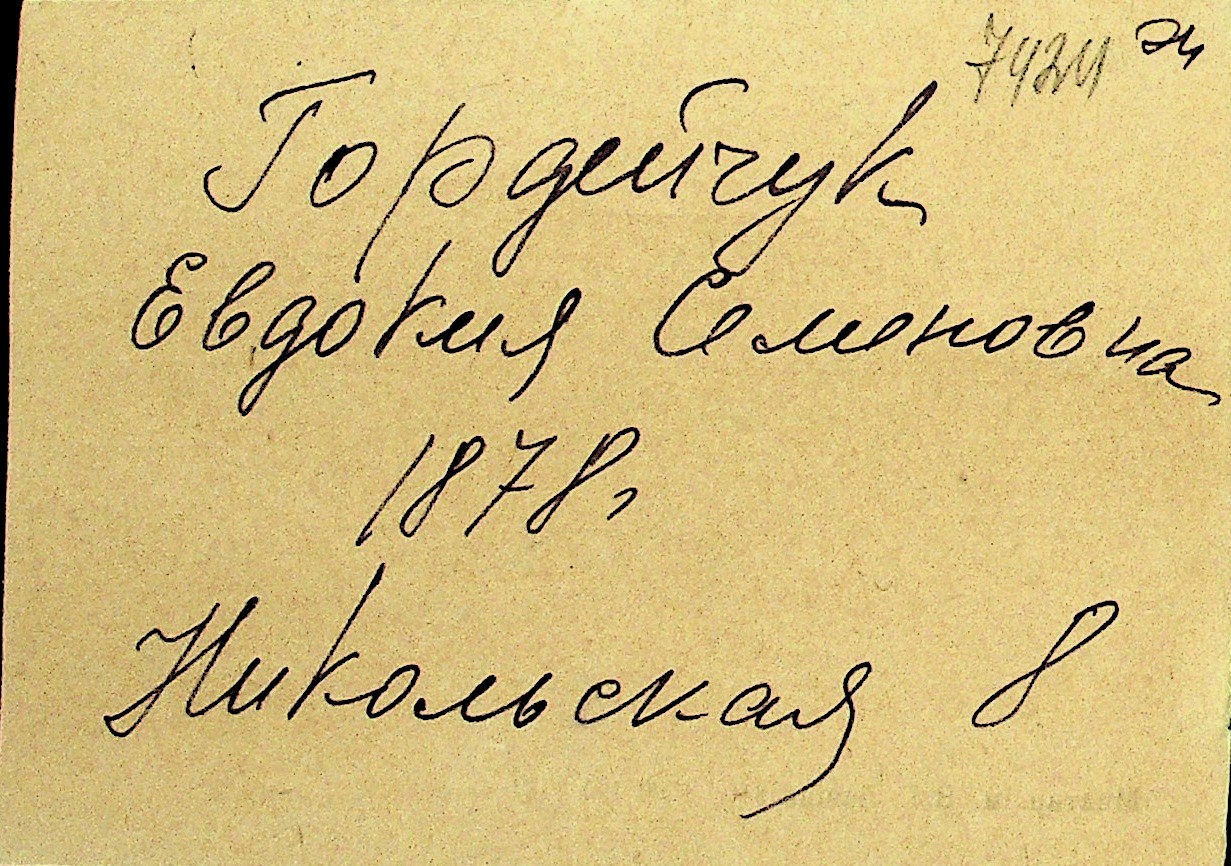 Гордейчук
Евдокия Семеновна
1878г
Никольская 8